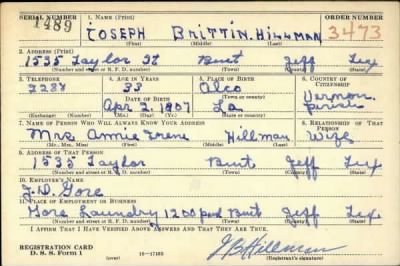 SERIAL NUMBER 1. NAME (Print) ORDER NUMBER
1489 JOSEPH BRITTIN HILLMAN 3473
(First) (Middle) (Last)
2. ADDRESS (Print)
1535 Taylor St Bmt Jeff Tex
(Number and street or R. F. D. number) (Town) (County) (State)
3. TELEPHONE 4. AGE IN YEARS 5. PLACE OF BIRTH 6. COUNTRY OF CITIZENSHIP
33 Alco Vernon
DATE OF BIRTH (Town or county) Parish
Apr 2 1907 La
(Mo.) (Day) (Yr.) (State or country)
7. NAME OF PERSON WHO WILL ALWAYS KNOW YOUR ADDRESS 8. RELATIONSHIP OF THAT PERSON
Mrs Annie Irene Hillman Wife
(Mr., Mrs., Miss) (First) (Middle) (Last)
9. ADDRESS OF THAT PERSON
1535 Taylor Bmt Jeff Tex
(Number and street or R. F. D. number) (Town) (County) (State)
10. EMPLOYER'S NAME
J.D. Gore
11. PLACE OF EMPLOYMENT OR BUSINESS
Gore Laundry 1200 Bmt Jeff Tex
(Number and street or R. F. D. number) (Town) (County) (State)
I AFFIRM THAT I HAVE VERIFIED ABOVE ANSWERS AND THAT THEY ARE TRUE.
REGISTRATION CARD
D. S. S. Form 1 (over) 16—17105 JB Hillman
(Registrant's signature)